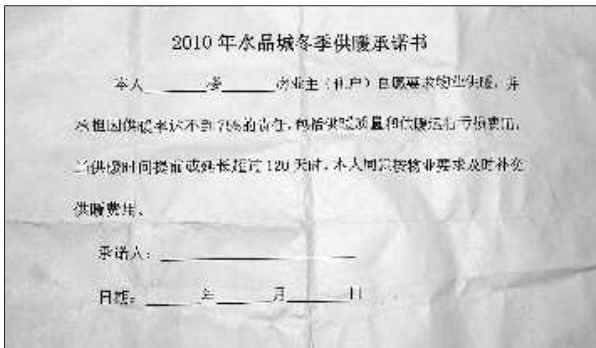 2010年水晶城冬季供暖承诺书
本人______楼______房业主（租户）自愿要求物业供暖，并
承担因供暖率达不到75%的责任，包括供暖质量和供暖运行亏损费用，
当供暖时间提前或延长超过120天时，本人同意按物业要求及时补交
供暖费用。
承诺人：____________
日期：_____年_____月_____日